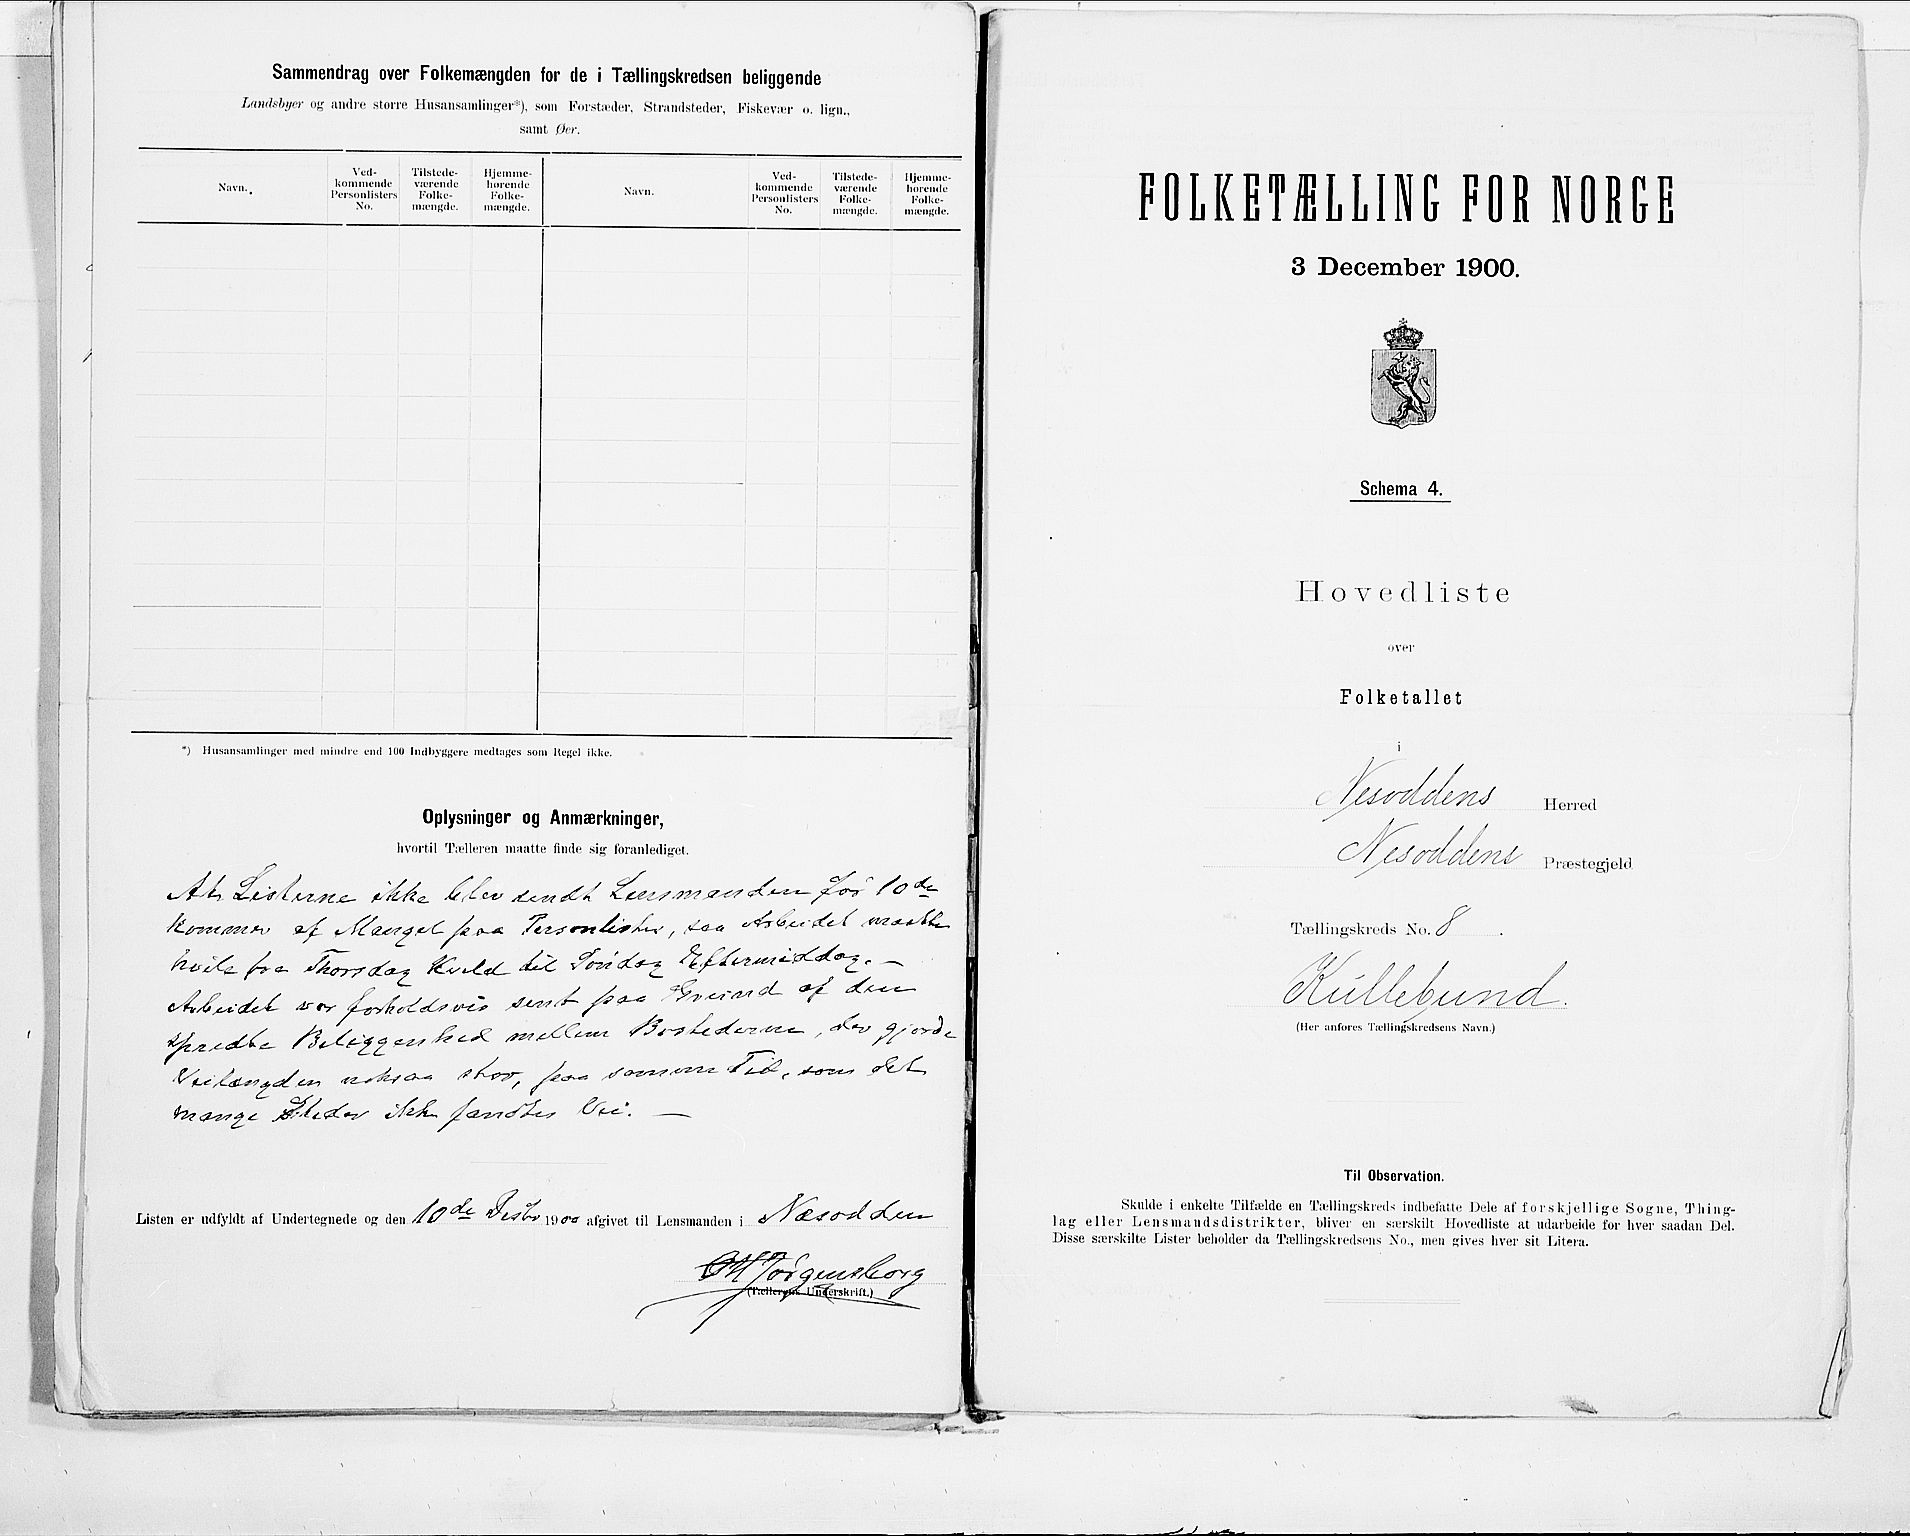 Sammendrag over Folkemængden for de i Tællingskredsen beliggende
Landsbyer og andre større Husansamlinger*), som Forstæder, Strandsteder, Fiskevær o. lign.,
samt Øer.
Navn.
Ved-
kommende
Personlisters
No.
Tilstede-
værende
Folke-
mængde.
Hjemme-
hørende
Folke-
mængde.
Navn.
Ved-
kommende
Personlisters
No.
Tilstede-
værende
Folke-
mængde.
Hjemme-
hørende
Folke-
mængde.
*) Husansamlinger med mindre end 100 Indbyggere medtages som Regel ikke.
Oplysninger og Anmærkninger,
hvortil Tælleren maatte finde sig foranlediget.
At Listerne ikke blev sendt Lensmanden før 10de
kommer af Mangel paa Personlister, saa Arbeidet maatte
hvile fra Thorsdag Kveld til Søndag Eftermiddag. —
Arbeidet var forholdsvis sent paa Grund af den
spredte Beliggenhed mellem Bostederne, der gjorde
Veilængden ogsaa stor, paa samme Tid, som det
mange Steder ikke fandtes Vei. —
Listen er udfyldt af Undertegnede og den 10de Desbr 1900 afgivet til Lensmanden i Næsodden
Jørgensborg
(Tællerens Underskrift.)
FOLKETÆLLING FOR NORGE
3 December 1900.
Schema 4.
Hovedliste
over
Folketallet
i
Nesoddens Herred
Nesoddens Præstegjeld
Tællingskreds No. 8.
Kullebund.
(Her anføres Tællingskredsens Navn.)
Til Observation.
Skulde i enkelte Tilfælde en Tællingskreds indbefatte Dele af forskjellige Sogne, Thing-
lag eller Lensmandsdistrikter, bliver en særskilt Hovedliste at udarbeide for hver saadan Del.
Disse særskilte Lister beholder da Tællingskredsens No., men gives hver sit Litera.